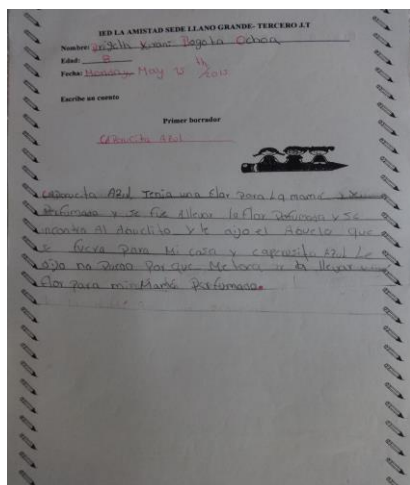 IED LA AMISTAD SEDE LLANO GRANDE- TERCERO J.T
Nombre: Bogota Ochoa
Edad: 8
Fecha: Monday May 11 2015
Escribo un cuento
Primer borrador
Caperucita Azul
caperucita Azul Tenia una flor para La mamá
perfumada y se fue allevar la flor Perfumada y se
al Abuelito y le dijo el Abuelo que
fuera para Mi casa y caperusita Azul Le
dijo no Puedo Por que Me toca llevar
Flor para mi Mamá Perfumada.